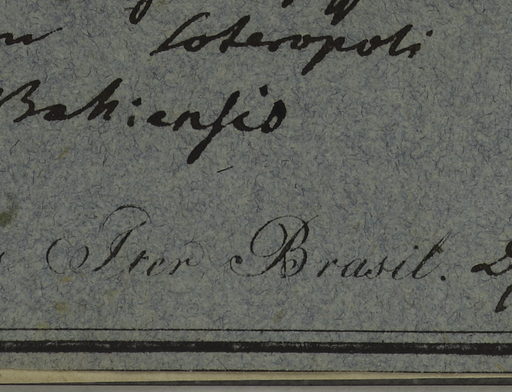 Soteropoli
Bahiensis
Iter Brasil.